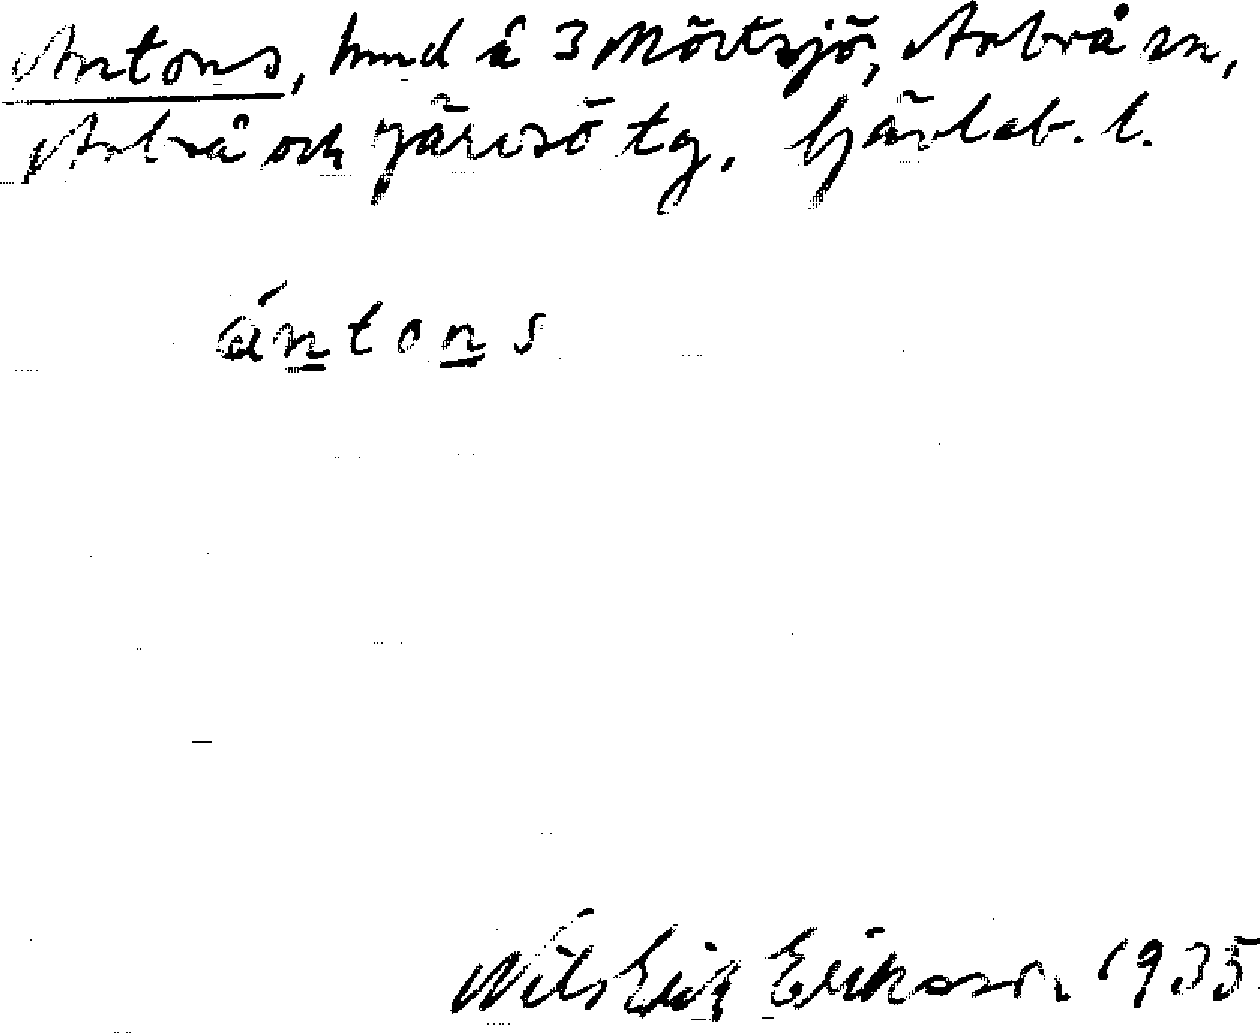 Antons, hmd å 3 Mörtsjö, Arbrå sn,
Arbrå och Järvsö tg. Gävleb. l.
ántons
Nils Erik Eriksson 1935